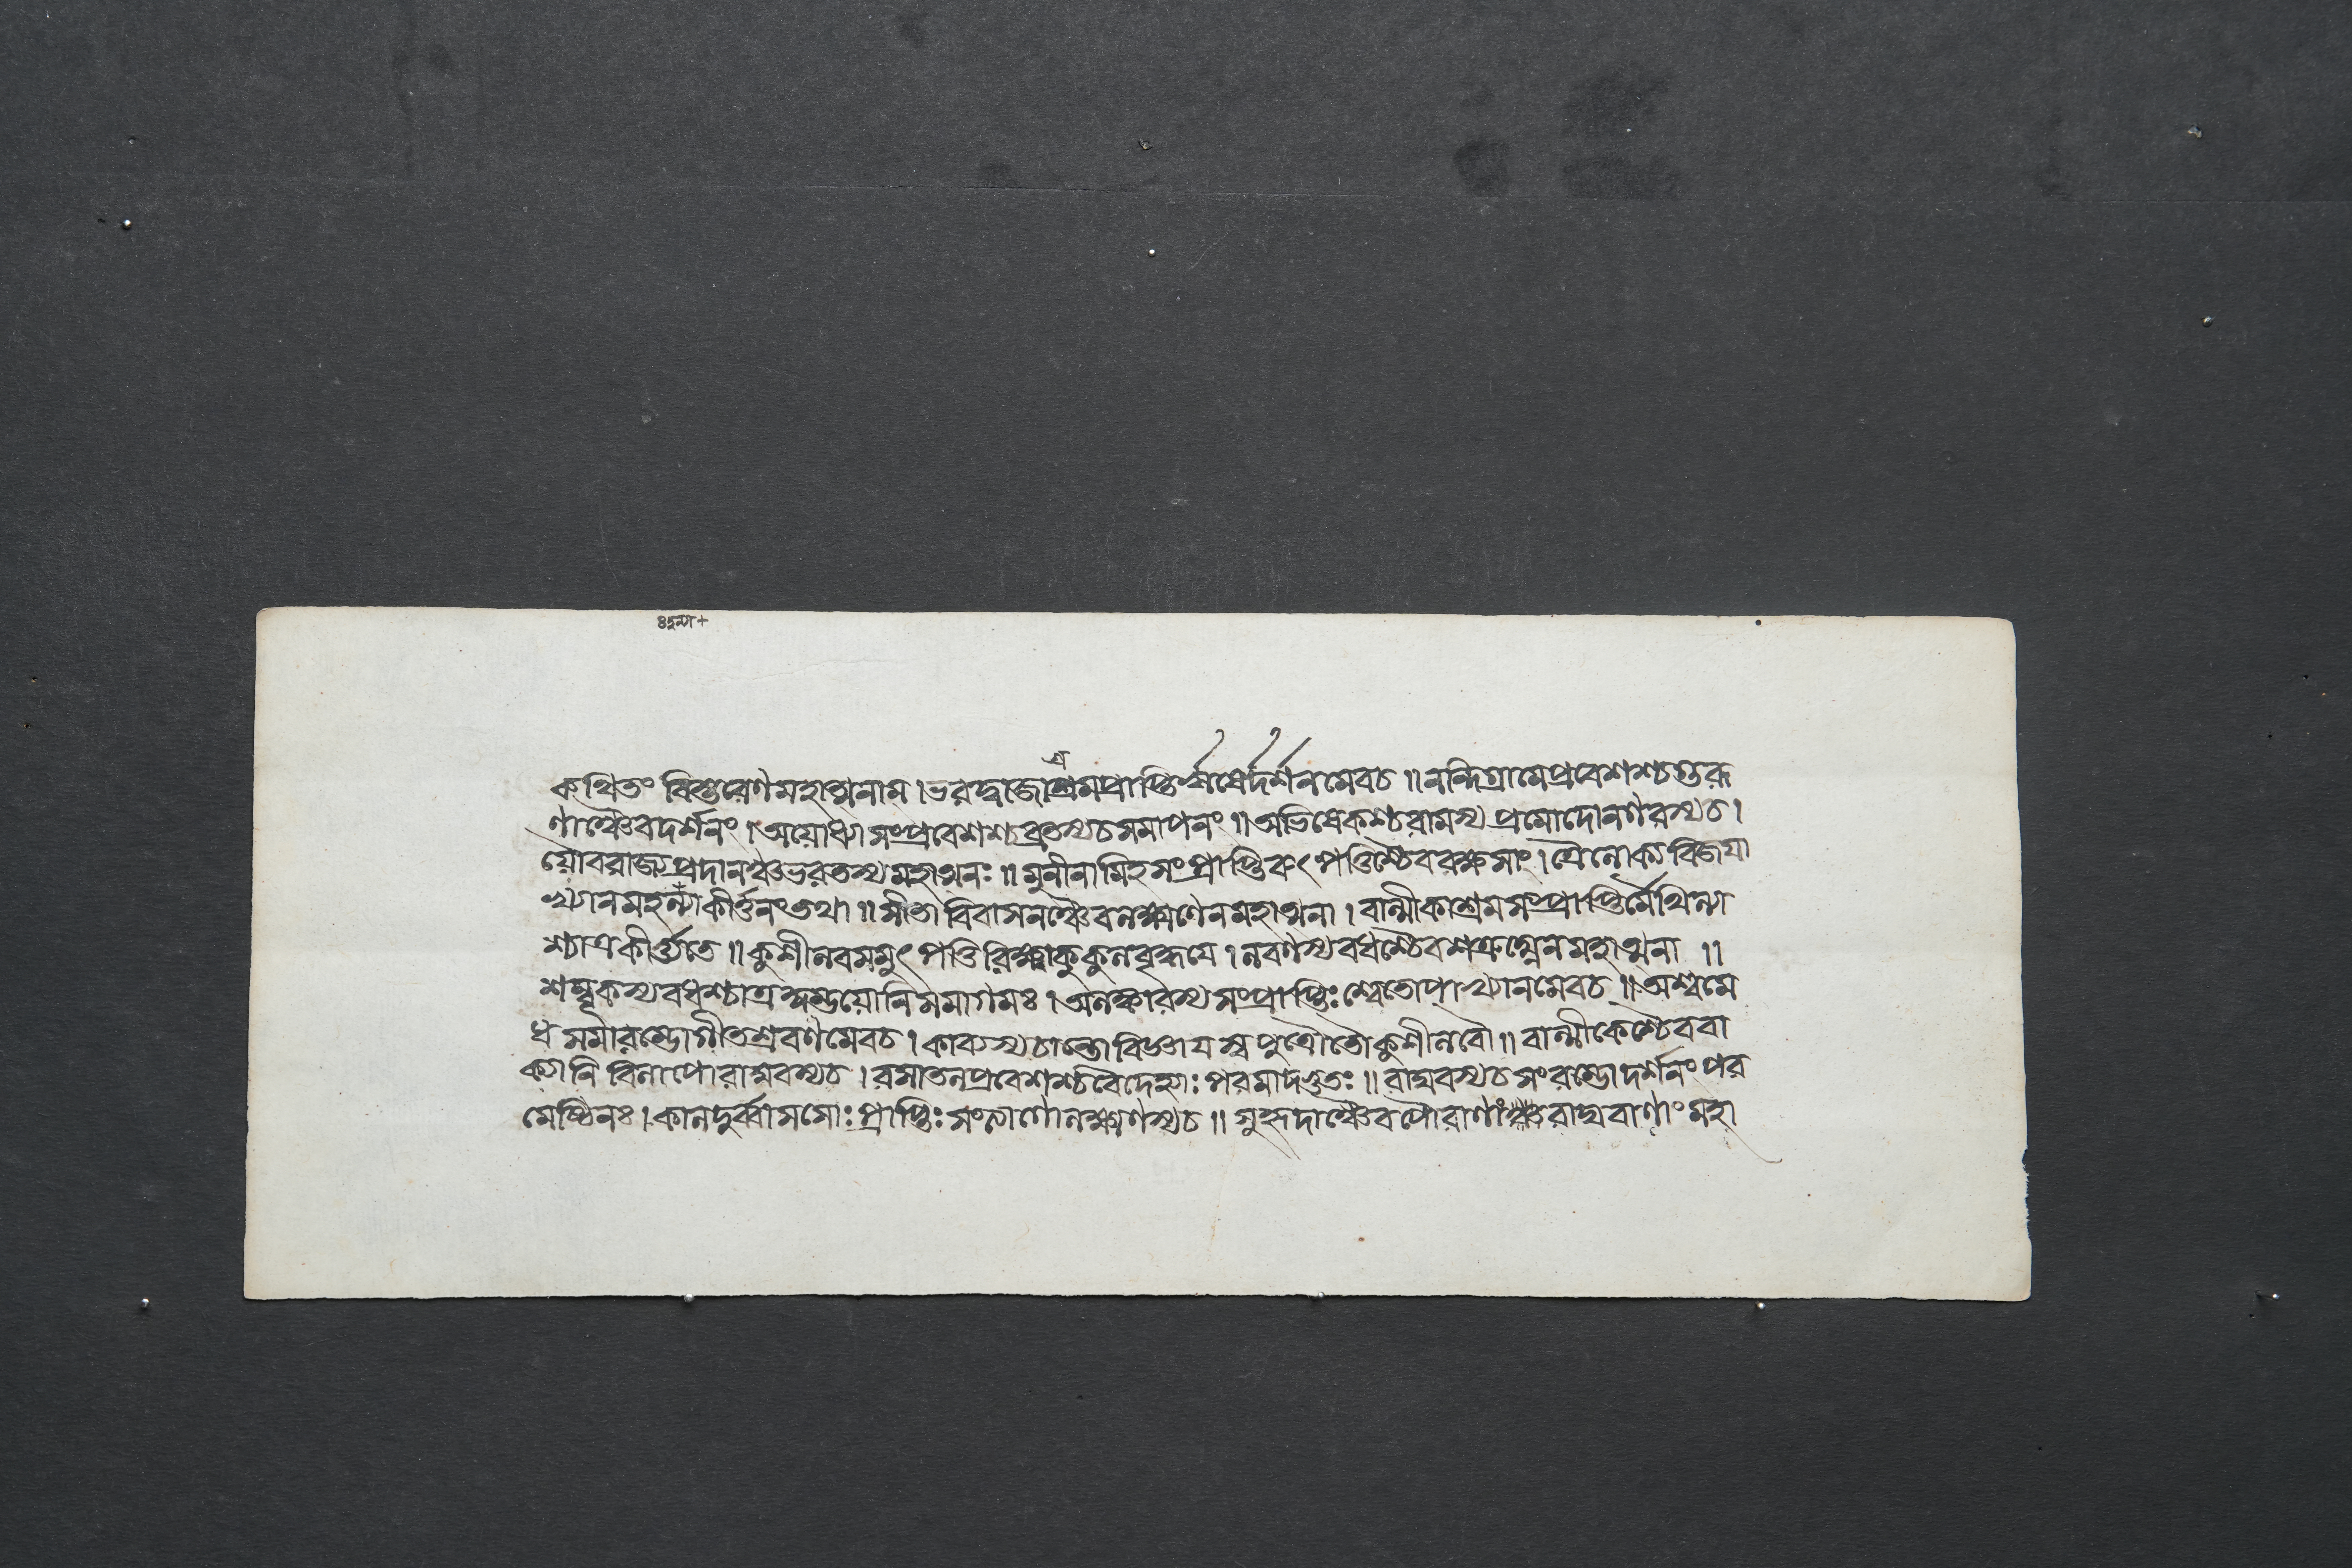 কথিতং বিস্তরেণমহাত্মনাম।ভরদ্বাজাশ্রমপ্রাপ্তির্ষ্মষের্দর্শনমেবচ॥নন্দিগ্রামেপ্রবেশশ্চগুরূ
ণাঞ্চৈবদর্শনং।অয়োধ্যাসংপ্রবেশশ্চব্রতস্যচসমাপনং॥অভিষেকশ্চরামস্যপ্রমোদোনগরস্যচ।
য়ৌবরাজ্যপ্রদানঞ্চভরতস্যমহাত্মনঃ॥মুনীনামিহসংপ্রাপ্তিরুৎপত্তিশ্চৈবরক্ষসাং।ত্রৈলোক্যবিজয়া
খ্যানমহল্যাকীর্ত্তনংতথা॥সীতাবিবাসনঞ্চৈবলক্ষ্মণেনমহাত্মনা।বাল্মীকাশ্রমসংপ্রাপ্তির্মৈথিল্যা
শ্চাত্রকীর্ত্ত্যতে॥কুশীলবসমুৎপত্তিরিক্ষ্বাকুকুলবৃদ্ধয়ে।লবণস্যবধশ্চৈবশত্রুঘ্নেনমহাত্মনা॥
শম্বূকস্যবধশ্চাত্রকুম্ভয়োনিসমাগমঃ।অলঙ্কারস্যসংপ্রাপ্তিঃশ্বেতোপাখ্যানমেবচ॥অশ্বমে
ধসমারম্ভোগীতশ্রবণমেবচ।কাব্যস্যচান্তোবিজ্ঞায়স্বপুত্রৌতৌকুশীলবৌ॥বাল্মীকেশ্চৈববা
ক্যানিবিলাপোরাঘবস্যচ।রসাতলপ্রবেশশ্চবৈদেহ্যাঃপরমাদ্ভুতঃ॥রাঘবস্যচসংরম্ভোদর্শনংপর
মেষ্ঠিনঃ।কালদুর্ব্বাসসোঃপ্রাপ্তিঃসংত্যাগোলক্ষ্মণস্যচ॥সুহৃদাঞ্চৈবপৌরাণাংরাঘবাণাংমহা